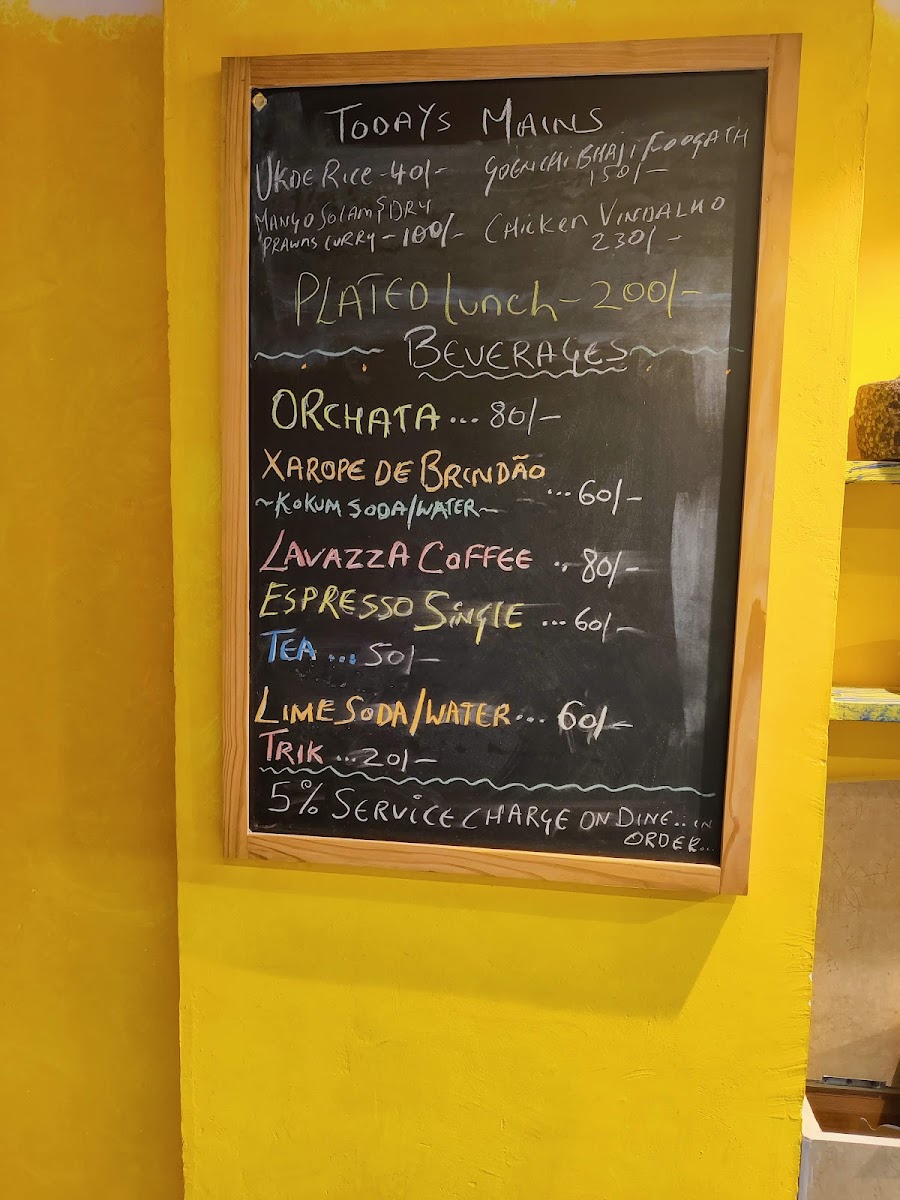 TODAYS MAINS
UKDE RICE - 40/-
GOENCHI BHAJI/FOOGATH
150/-
MANGO SOLAM & DRY
PRAWNS CURRY - 100/-
CHICKEN VINDALHO
230/-
PLATED lunch - 200/-
BEVERAGES
ORCHATA ... 80/-
XAROPE DE BRINDÃO
... 60/-
~KOKUM SODA/WATER~
LAVAZZA COFFEE .. 80/-
ESPRESSO SINGLE ... 60/-
TEA ... 50/-
LIME SODA/WATER... 60/-
TRIK ... 20/-
5% SERVICE CHARGE ON DINE..IN
ORDER...